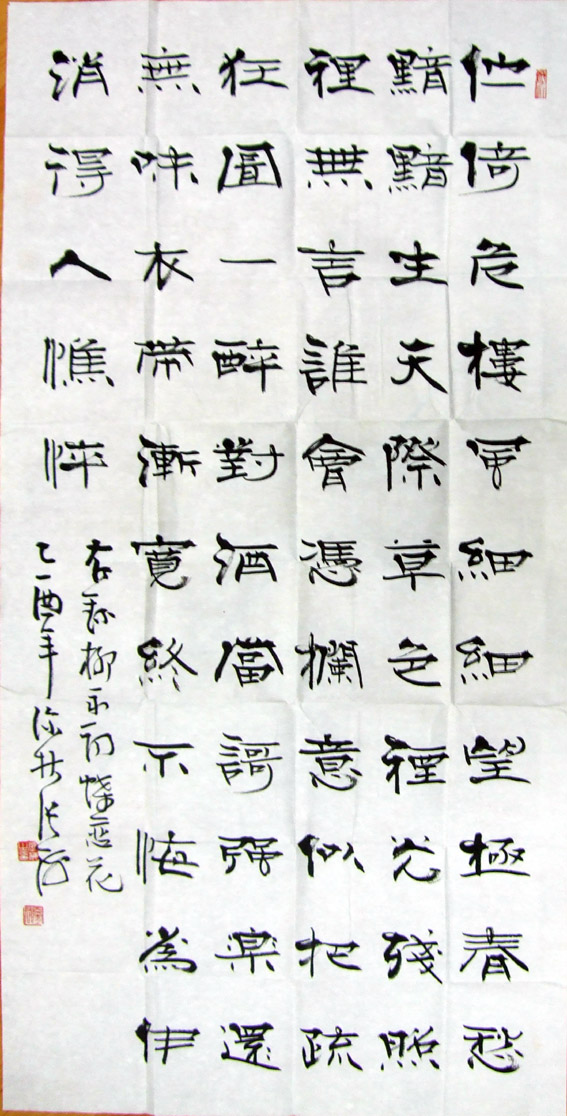 佇倚危樓風細細望極春愁
黯黯生天際草色煙光殘照
裡無言誰會憑欄意似把疏
狂圖一醉對酒當謌強樂還
無味衣帶漸寬終不悔為伊
消得人憔悴
右錄柳永詞蝶戀花
乙酉年深秋